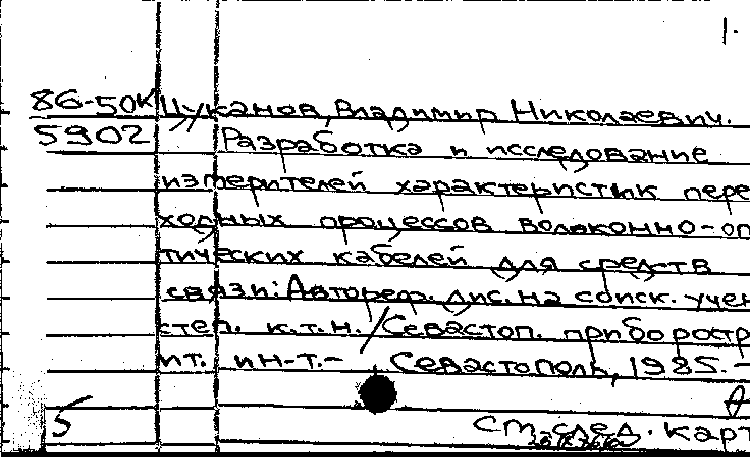 1.
86-50к Цуканов, Владимир Николаевич.
5902 Разработка и исследование
измерителей характеристик пере
ходных процессов волоконно-оп
тических кабелей для средств
связи: Автореф. дис. на соиск. учен
степ. к.т.н. / Севастоп. приборостр
ит. ин-т. - Севастополь, 1985. -
5
См. след. карт